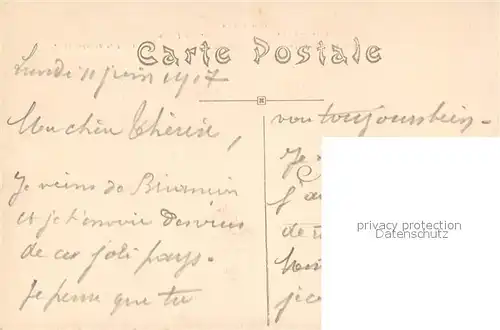 Carte Postale
Lundi 11 juin 1917
Ma chère Thérèse,
Je viens de Briançon
et je t'envoie des vues
de ce joli pays.
Je pense que tu
vas toujours bien.
Je
j'a
de
privacy protection
Datenschutz